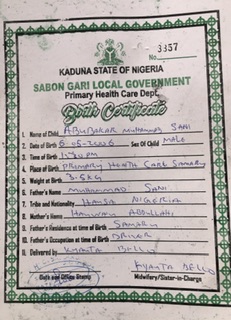 No. 3357
KADUNA STATE OF NIGERIA
SABON GARI LOCAL GOVERNMENT
Primary Health Care Dept.
Birth Certificate
1. Name of Child ABUBAKAR MUHAMMAD SANI
2. Date of Birth 6-05-2006 Sex Of Child MALE
3. Time of Birth 1:30PM
4. Place of Birth PRIMARY HEALTH CARE SAMARU
5. Weight at Birth 3.5KG
6. Father's Name MUHAMMAD SANI
7. Tribe and Nationality HAUSA NIGERIA
8. Mother's Name ABDULLAHI
9. Father's Residence at time of Birth SAMARU
10. Father's Occupation at time of Birth DRIVER
11. Delivered by BELLO
BELLO
Date and Office Stamp
Midwifery/Sister-in-Charge